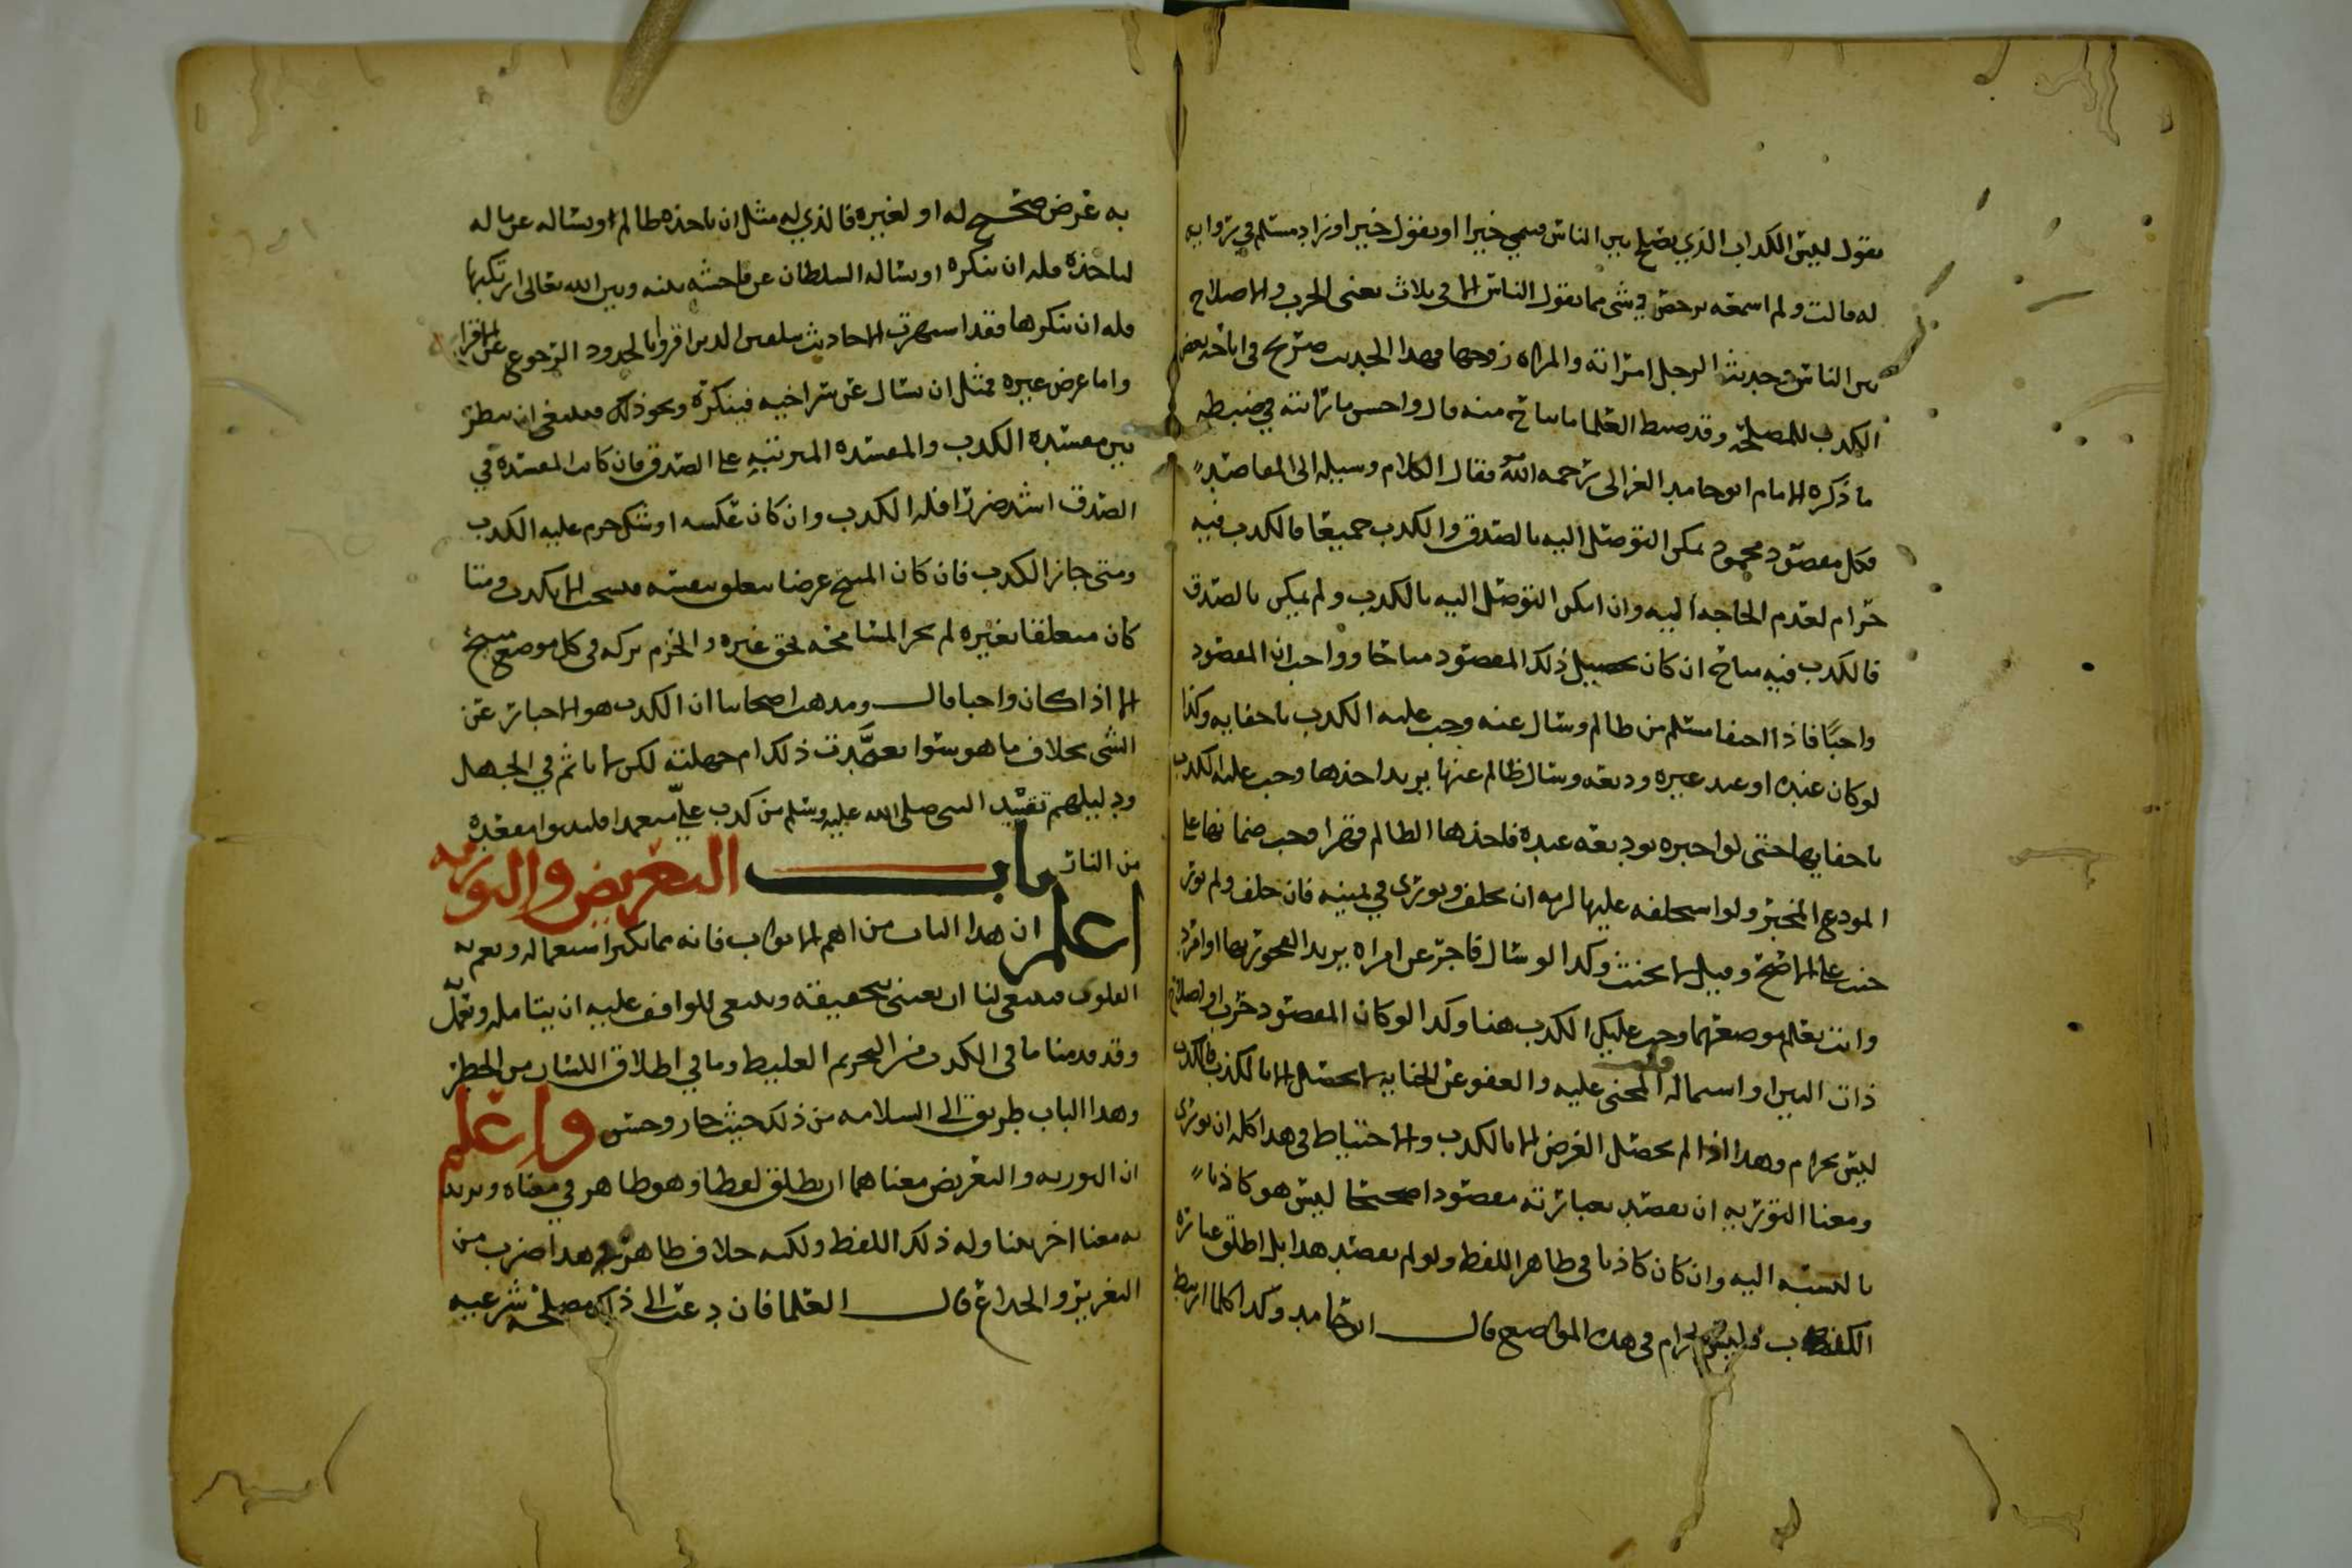 يقول ليس الكداب الذي يصلح بين الناس فينمي خيرا او يقول خيرا وزاد مسلم في روايه
له قالت ولم اسمعه يرخص في شي مما يقول الناس الا في ثلاث يعني الحرب والاصلاح
بين الناس وحديث الرجل امراته والمراه زوجها فهدا الحديث صريح في اباحه بعض
الكدب للمصلحة وقد ضبط العلما ما يباح منه قالوا احسن ما رايته في ضبطه
ما ذكره الامام ابو حامد الغزالي رحمه الله فقال الكلام وسيله الى المقاصد
فكل مقصود محمود يمكن التوصل اليه بالصدق والكدب جميعا فالكدب فيه
حرام لعدم الحاجه اليه وان امكن التوصل اليه بالكدب ولم يمكن بالصدق
فالكدب فيه مباح ان كان تحصيل ذلك المقصود مباحا وواجب ان المقصود
واجبا فاذا اختفا مسلم من ظالم وسال عنه وجب عليه الكدب باخفايه وكذا
لو كان عنده او عند غيره وديعه وسال ظالم عنها يريد اخذها وجب عليه الكدب
باخفايها حتى لو اخبره بوديعه عنده فاخذها الظالم قهرا وجب ضمانها على
المودع المخبر ولو استحلفه عليها لزمه ان يحلف ويوري في يمينه فان حلف ولم يور
حنث على الاصح وقيل لا يحنث وكدا لو سال فاجر عن امراه يريد الفجور بها او امرد
وانت تعلم موضعهما وجب عليك الكدب هنا وكدا لو كان المقصود حرب او اصلاح
ذات البين او استماله قلب المجني عليه والعفو عن الجنايه لا يحصل الا بالكذب فالكدب
ليس بحرام وهدا اذا لم يحصل الغرض الا بالكدب والاحتياط في هدا كله ان يوري
ومعنا التوريه ان يقصد بعبارته مقصودا صحيحا ليس هو كاذبا
بالنسبه اليه وان كان كاذبا في ظاهر اللفظ ولو لم يقصد هدا بل اطلق عباره
الكدب فليس بحرام في هده المواضع قال ابو حامد وكدا كلما ارتبط
به غرض صحيح له او لغيره فالذي له مثل ان ياخذه ظالم او يساله عن ماله
لياخذه فله ان ينكره او يساله السلطان عن فاحشه بينه وبين الله تعالى ارتكبها
فله ان ينكرها فقد اشتهرت الاحاديث بتلقين الدين اقروا بالحدود الرجوع عن الاقرار
واما غرض غيره فمثل ان يسال عن سر اخيه فينكره ونحو ذلك فينبغي ان ينظر
بين مفسده الكدب والمفسده المترتبه على الصدق فان كانت المفسده في
الصدق اشد ضررا فله الكدب وان كان عكسه او شك حرم عليه الكدب
ومتى جاز الكدب فان كان المبيح غرضا يتعلق بنفسه فيستحب الا يكدب ومتا
كان متعلقا بغيره لم تجز المسامحه بحق غيره والحزم تركه في كل موضع مبيح
الا اذا كان واجبا قال ومدهب اصحابنا ان الكدب هو الاخبار عن
الشي بخلاف ما هو سوا تعمدت ذلك ام جهلته لكن لا ياثم في الجهل
ودليلهم تقييد النبي صلى الله عليه وسلم من كدب علي متعمدا فليتبوا مقعده
من النار باب التعريض والتوريه
اعلم ان هدا الباب من اهم الابواب فانه مما يكثر استعماله وتعم به
البلوى فينبغي لنا ان نعتني بتحقيقه وينبغي للواقف عليه ان يتامله ويعمل به
وقد قدمنا ما في الكدب من التحريم الغليظ وما في اطلاق اللسان من الخطر
وهدا الباب طريق الى السلامه من ذلك واعلم
ان التوريه والتعريض معناهما ان يطلق لفظا وهو ظاهر في معناه ويريد
به معنا اخر يتناوله ذلك اللفظ ولكنه خلاف ظاهره وهدا ضرب من
التغرير والخداع قال العلما فان دعت الى ذلك مصلحه شرعيه